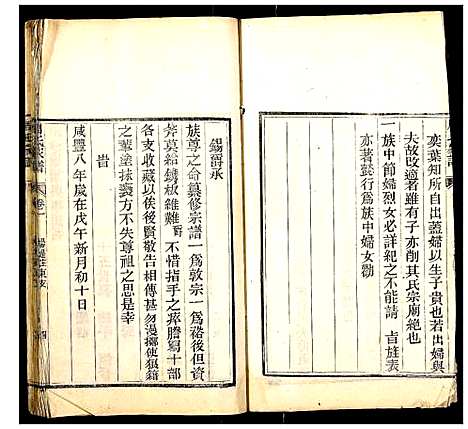 奕葉知所自出蓋婦以生子貴也若出婦與
夫故改適者雖有子亦削其氏宗廟絕也
一族中節婦烈女必詳紀之不能請 旨旌表
亦著懿行爲族中婦女勸
錫爵承
族尊之命纂修宗譜一爲敦宗一爲裕後但資
斧莫給鐫板維難 不惜指手之瘁謄寫十部
各支收藏以俟後賢敬告相傳甚勿漫擲使狼籍
之輩塗抹褻方不失尊祖之思是幸
旹
咸豐八年歲在戊午新月初十日
卷一